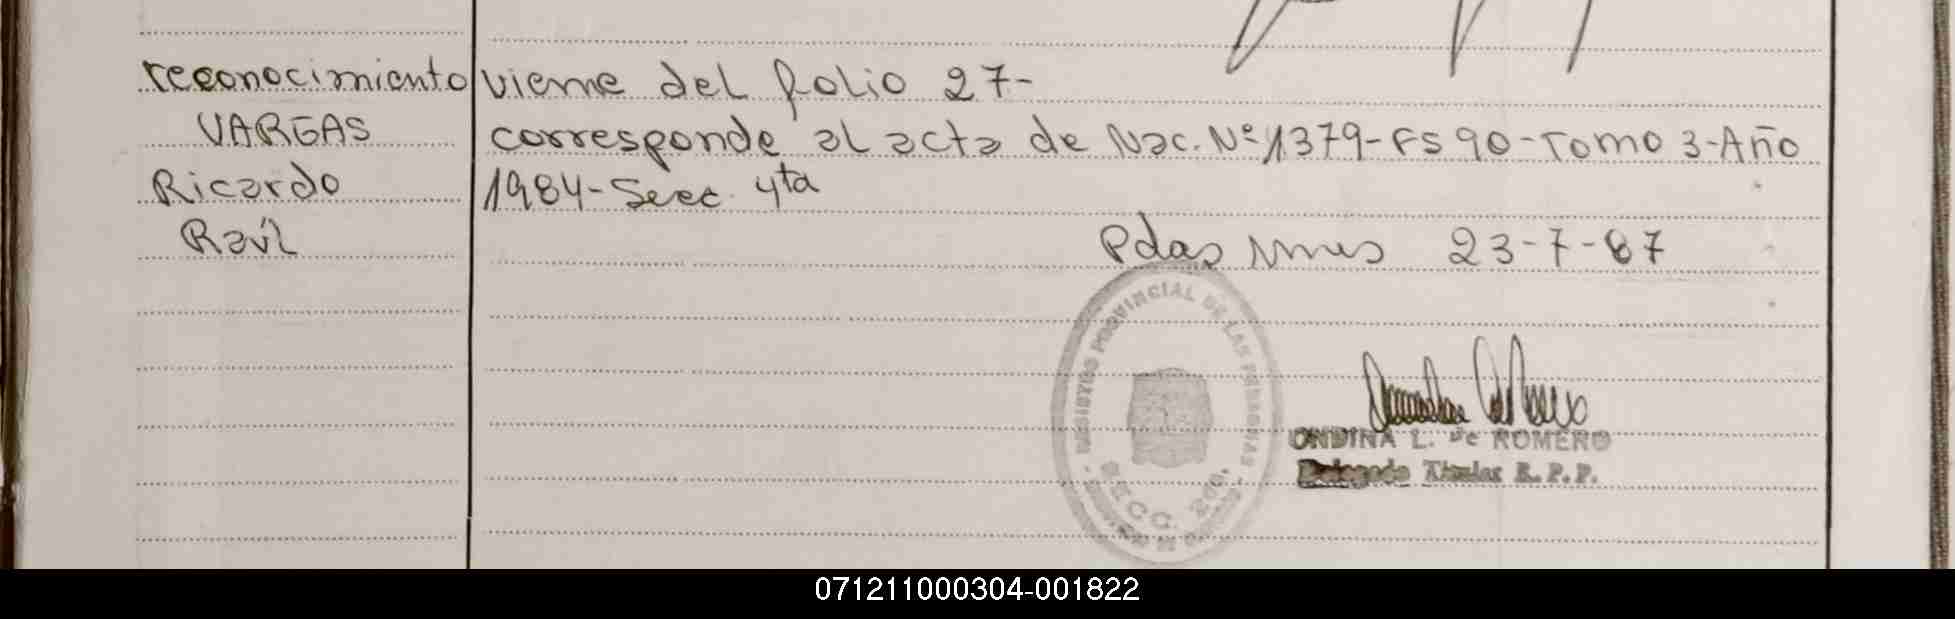 reconocimiento viene del folio 27-
VARGAS corresponde al acta de Nac. Nº 1379-Fs 90-Tomo 3-Año
Ricardo 1984-Secc. 4ta
Raúl
Pdas 23-7-87
REGISTRO PROVINCIAL DE LAS PERSONAS
SECC. 2da.
ONDINA L. de ROMERO
Delegada Titular R.P.P.
071211000304-001822